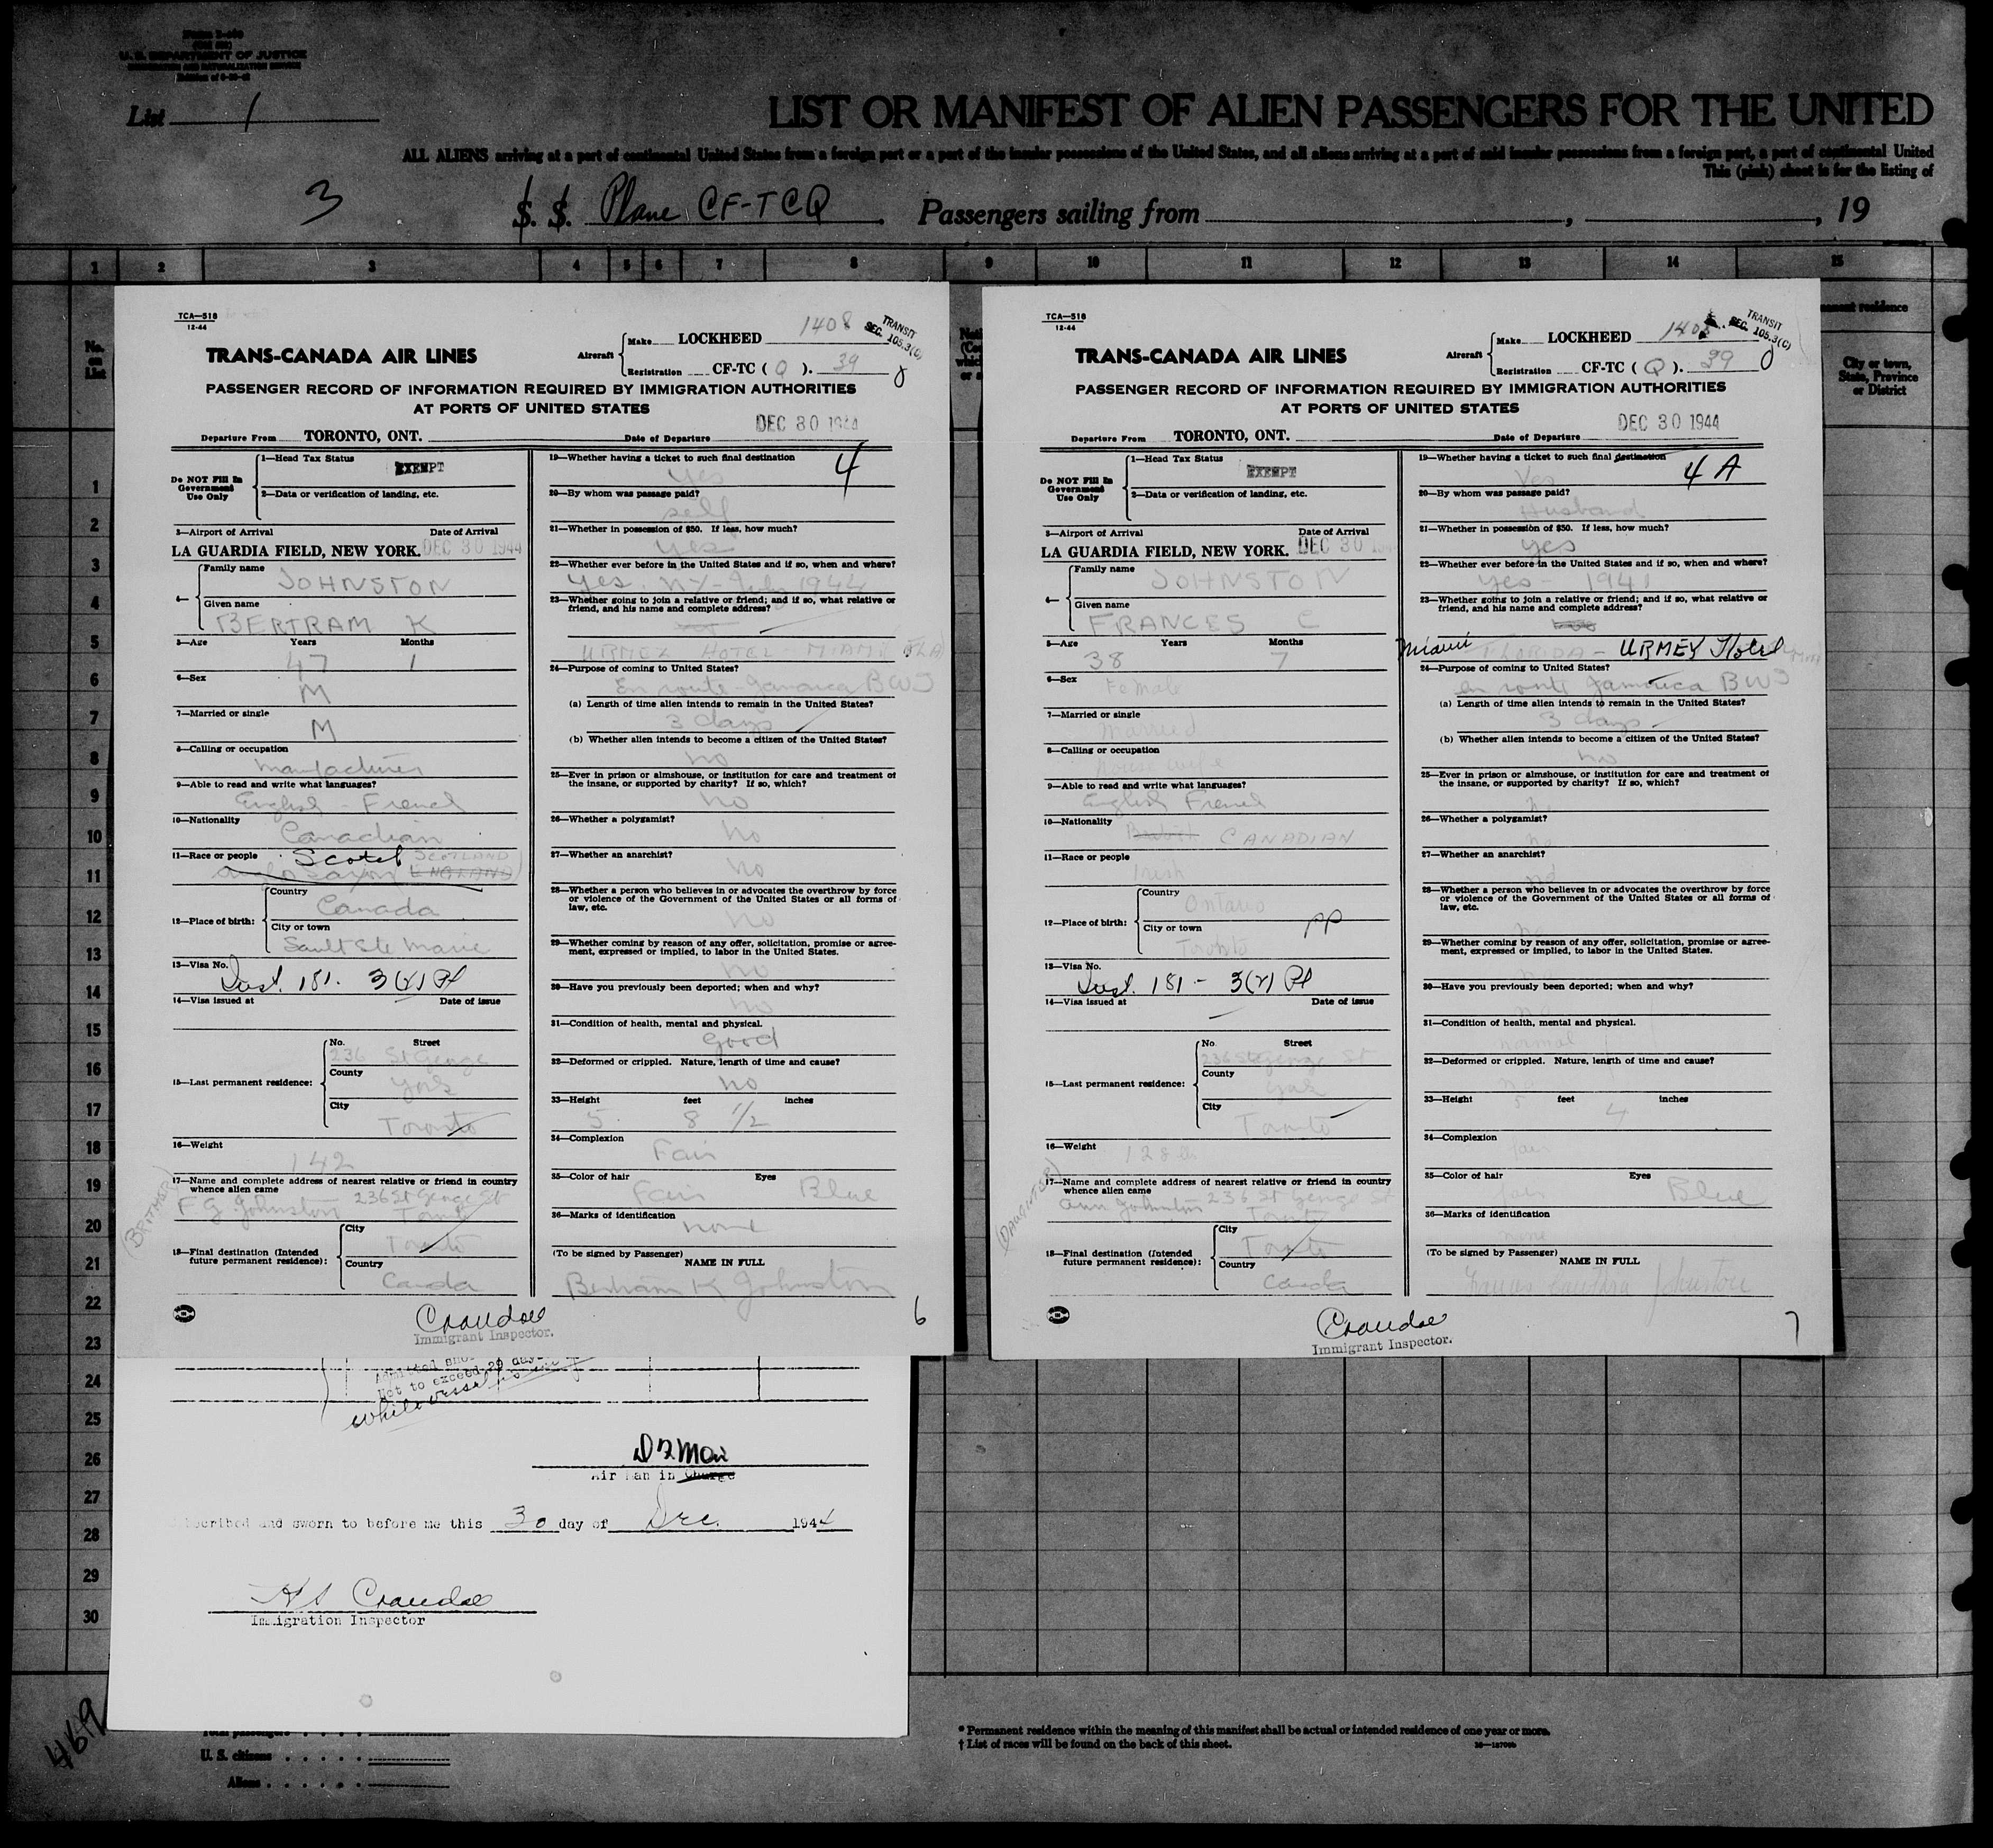 U. S. DEPARTMENT OF JUSTICE
List 1
LIST OR MANIFEST OF ALIEN PASSENGERS FOR THE UNITED
ALL ALIENS arriving at a port of continental United States from a foreign port or a port of the insular possessions of the United States, and all aliens arriving at a port of said insular possessions from a foreign port, a port of continental United
This (pink) sheet is for the listing of
3 S. S. Plane CF-TCQ Passengers sailing from , , 19
1 2 3 4 5 6 7 8 9 10 11 12 13 14 15
No. on List
City or town, State, Province or District
TCA—518
12-44
TRANS-CANADA AIR LINES
Aircraft Make LOCKHEED 1408
Registration CF-TC ( Q ). 39
TRANSIT SEC. 105.3(C)
PASSENGER RECORD OF INFORMATION REQUIRED BY IMMIGRATION AUTHORITIES
AT PORTS OF UNITED STATES
Departure From TORONTO, ONT. Date of Departure DEC 30 1944
Do NOT Fill In Government Use Only
1—Head Tax Status EXEMPT
2—Data or verification of landing, etc.
3—Airport of Arrival Date of Arrival
LA GUARDIA FIELD, NEW YORK. DEC 30 1944
4— Family name JOHNSTON
Given name BERTRAM K
5—Age Years Months
47 1
6—Sex
M
7—Married or single
M
8—Calling or occupation
9—Able to read and write what languages?
English - French
10—Nationality
Canadian
11—Race or people Scotch SCOTLAND
ENGLAND
12—Place of birth: Country
Canada
City or town
Sault Ste Marie
13—Visa No.
181. 3(2) Pl
14—Visa issued at Date of issue
15—Last permanent residence: No. Street
236 St George
County
York
City
Toronto
16—Weight
142
17—Name and complete address of nearest relative or friend in country whence alien came
F G Johnston 236 St George St
Toronto
(BROTHER)
18—Final destination (Intended future permanent residence): City
Toronto
Country
Canda
19—Whether having a ticket to such final destination 4
Yes
20—By whom was passage paid?
self
21—Whether in possession of $50. If less, how much?
Yes
22—Whether ever before in the United States and if so, when and where?
Yes. NY - July 1944
23—Whether going to join a relative or friend; and if so, what relative or friend, and his name and complete address?
URMEY HOTEL - MIAMI FLA
24—Purpose of coming to United States?
En route - Jamaica BWI
(a) Length of time alien intends to remain in the United States?
3 days
(b) Whether alien intends to become a citizen of the United States?
no
25—Ever in prison or almshouse, or institution for care and treatment of the insane, or supported by charity? If so, which?
no
26—Whether a polygamist?
no
27—Whether an anarchist?
no
28—Whether a person who believes in or advocates the overthrow by force or violence of the Government of the United States or all forms of law, etc.
no
29—Whether coming by reason of any offer, solicitation, promise or agreement, expressed or implied, to labor in the United States.
no
30—Have you previously been deported; when and why?
no
31—Condition of health, mental and physical.
good
32—Deformed or crippled. Nature, length of time and cause?
no
33—Height feet inches
5 8 1/2
34—Complexion
Fair
35—Color of hair Eyes
Fair Blue
36—Marks of identification
none
(To be signed by Passenger) NAME IN FULL
Bertram K Johnston
Crandall
Immigrant Inspector.
6
TCA—518
12-44
TRANS-CANADA AIR LINES
Aircraft Make LOCKHEED 1408
Registration CF-TC ( Q ). 39
TRANSIT SEC. 105.3(C)
PASSENGER RECORD OF INFORMATION REQUIRED BY IMMIGRATION AUTHORITIES
AT PORTS OF UNITED STATES
Departure From TORONTO, ONT. Date of Departure DEC 30 1944
Do NOT Fill In Government Use Only
1—Head Tax Status EXEMPT
2—Data or verification of landing, etc.
3—Airport of Arrival Date of Arrival
LA GUARDIA FIELD, NEW YORK. DEC 30
4— Family name JOHNSTON
Given name FRANCES C
5—Age Years Months
38 7
6—Sex
Female
7—Married or single
Married
8—Calling or occupation
Housewife
9—Able to read and write what languages?
English French
10—Nationality
CANADIAN
11—Race or people
Irish
12—Place of birth: Country
Ontario
City or town
Toronto
13—Visa No.
181 - 3(2) Pl
14—Visa issued at Date of issue
15—Last permanent residence: No. Street
236 St George St
County
York
City
Toronto
16—Weight
128
17—Name and complete address of nearest relative or friend in country whence alien came
Ann Johnston 236 St George St
Toronto
(DAUGHTER)
18—Final destination (Intended future permanent residence): City
Toronto
Country
Canda
19—Whether having a ticket to such final destination 4 A
Yes
20—By whom was passage paid?
Husband
21—Whether in possession of $50. If less, how much?
yes
22—Whether ever before in the United States and if so, when and where?
yes - 1941
23—Whether going to join a relative or friend; and if so, what relative or friend, and his name and complete address?
Miami FLORIDA - URMEY Hotel
24—Purpose of coming to United States?
en route Jamaica BWI
(a) Length of time alien intends to remain in the United States?
3 days
(b) Whether alien intends to become a citizen of the United States?
no
25—Ever in prison or almshouse, or institution for care and treatment of the insane, or supported by charity? If so, which?
no
26—Whether a polygamist?
no
27—Whether an anarchist?
no
28—Whether a person who believes in or advocates the overthrow by force or violence of the Government of the United States or all forms of law, etc.
29—Whether coming by reason of any offer, solicitation, promise or agreement, expressed or implied, to labor in the United States.
30—Have you previously been deported; when and why?
31—Condition of health, mental and physical.
normal
32—Deformed or crippled. Nature, length of time and cause?
33—Height feet inches
5 4
34—Complexion
fair
35—Color of hair Eyes
Blue
36—Marks of identification
none
(To be signed by Passenger) NAME IN FULL
Johnston
Crandall
Immigrant Inspector.
7
Not to exceed 29 days
while vessel
Air Man in Charge
scribed and sworn to before me this 30 day of Dec. 1944
H S Crandall
Immigration Inspector
1
2
3
4
5
6
7
8
9
10
11
12
13
14
15
16
17
18
19
20
21
22
23
24
25
26
27
28
29
30
4619
Total passengers
U. S. citizens
Aliens
* Permanent residence within the meaning of this manifest shall be actual or intended residence of one year or more.
† List of races will be found on the back of this sheet.